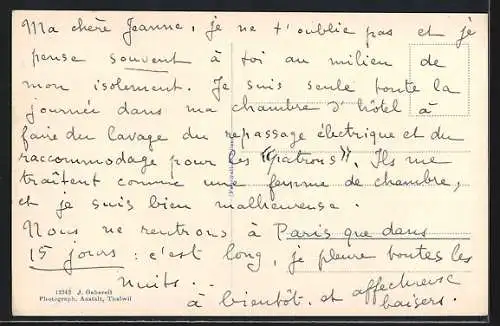 Ma chère Jeanne, je ne t'oublie pas et je
pense souvent à toi au milieu de
mon isolement. Je suis seule toute la
journée dans ma chambre d'hôtel à
faire du lavage du repassage électrique et du
raccommodage pour les "patrons". Ils me
traîtent comme une femme de chambre,
et je suis bien malheureuse.
Nous ne rentrons à Paris que dans
15 jours : c'est long, je pleure toutes les
nuits...
à bientôt. et affectueux
baisers.
12342 J. Gaberell
Photograph. Anstalt, Thalwil